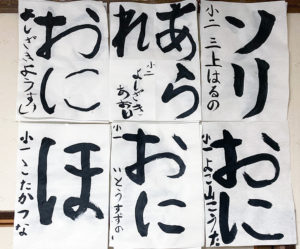 ソリ
小二 三上はるの
あられ
小二 よしざき あおい
おに
よしざきようすけ
おに
小一 よこ山こうた
おに
小一 いとうすずの
ほ
小一 こたかつな